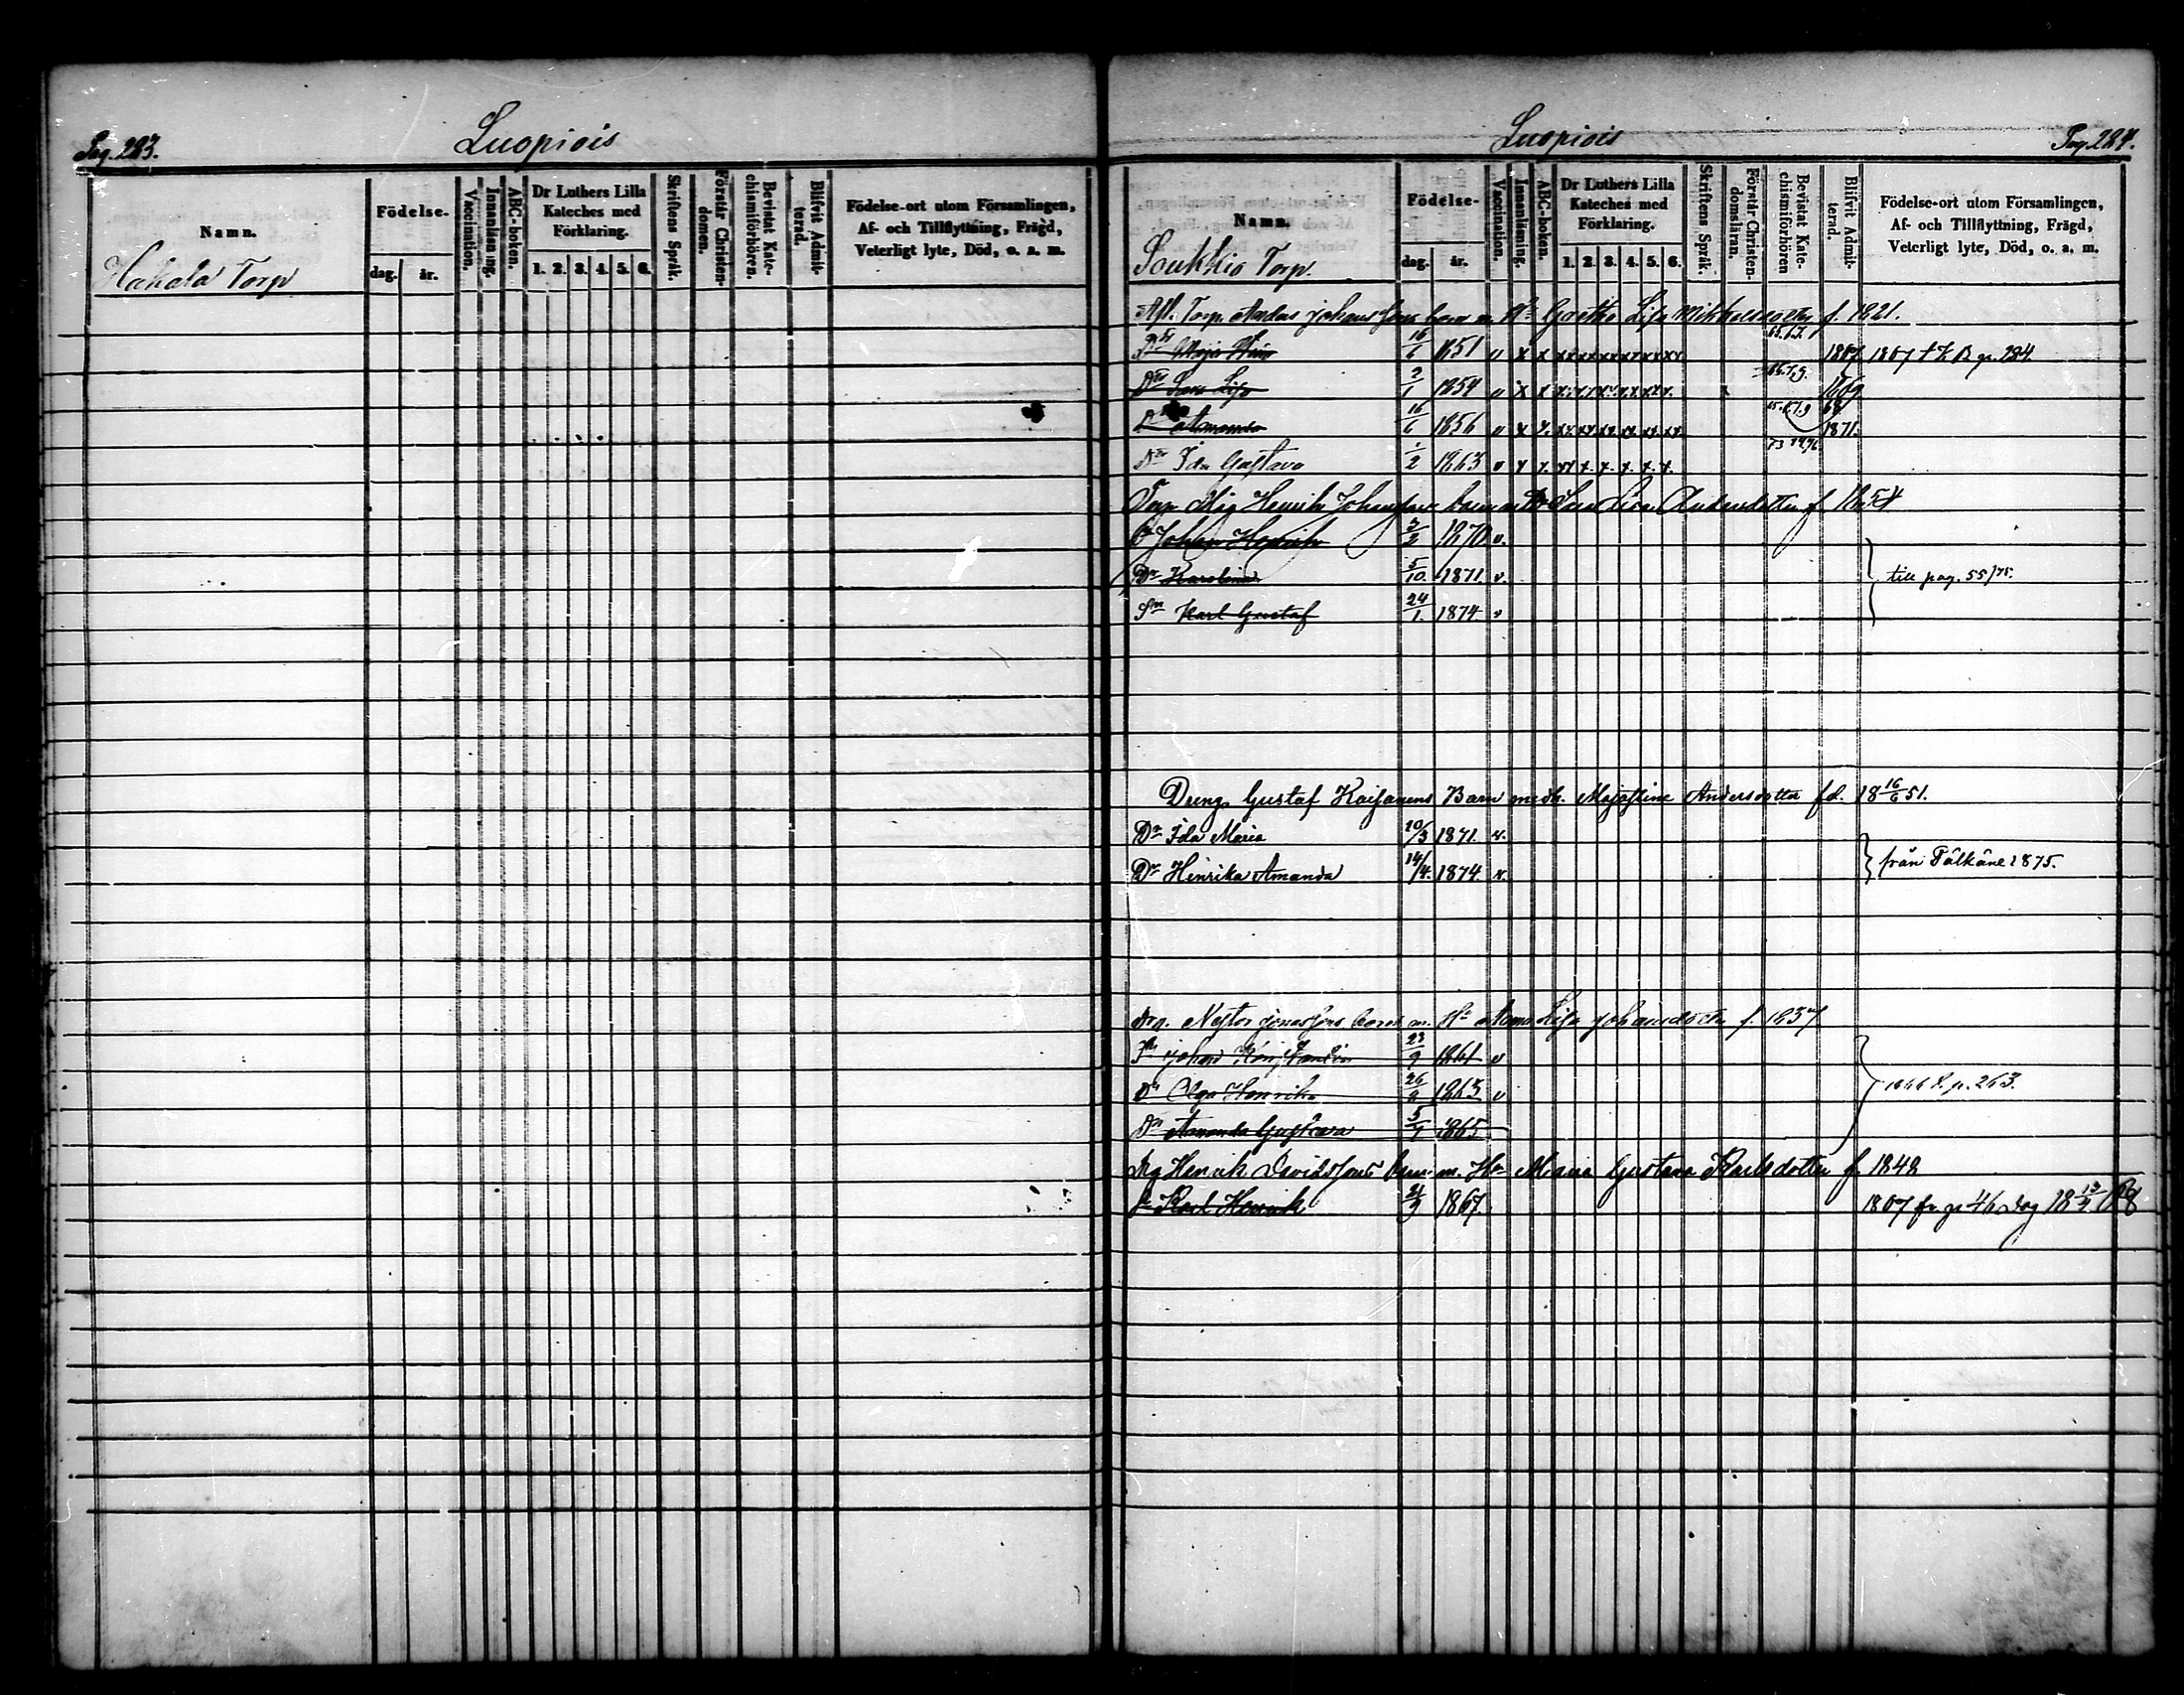 Pag. 283.
Luopiois
Namn.
Födelse-
dag. år.
Vaccination.
Innanläsning.
ABC-boken.
Dr Luthers Lilla Kateches med Förklaring.
1. 2. 3. 4. 5. 6.
Skriftens Språk.
Förstår Christendomen.
Bevistat Katechismiförhören.
Blifvit Admitterad.
Födelse-ort utom Församlingen,
Af- och Tillflyttning, Frägd,
Veterligt lyte, Död, o. a. m.
Hakala Torp
Luopiois
Pag. 284.
Namn.
Födelse-
dag. år.
Vaccination.
Innanläsning.
ABC-boken.
Dr Luthers Lilla Kateches med Förklaring.
1. 2. 3. 4. 5. 6.
Skriftens Språk.
Förstår Christendomsläran.
Bevistat Katechismiförhören
Blifvit Admitterad.
Födelse-ort utom Församlingen,
Af- och Tillflyttning, Frägd,
Veterligt lyte, Död, o. a. m.
Soukkio Torp.
Afl. Torp. Anders Johanssons barn m. Hu Greta Lisa Mikkelsdotter f. 1821.
Dr Maja Stina 16/6 1851 v x x 1867 1867 t K B p. 284.
Dr Sara Lisa 2/1 1854 v x x 1869
Dr Amanda 16/6 1856 v x x 1871.
Dr Ida Gustava 1/2 1863 v
Torp Måg Henrik Johansson barn m Hu Sara Lisa Andersdotter f. 1854
Sn Johan Henrik 3/2 1870 v.
Dr Karolina 5/10 1871. v.
Sn Karl Gustaf 24/1. 1874. v
till pag. 55/75.
Dreng. Gustaf Kaisanens Barn med h. Majastina Andersdotter fd. 18 16/6 51.
Dr Ida Maria 10/3 1871. v.
Dr Henrika Amanda 14/4. 1874. v.
från Pälkäne 1875.
Drg. Nestor Jonassons barn m. Hu Anna Lisa Johansdotter f. 1837
Sn Johan Konstantin 23/9 1861 v
Dr Olga Henrika 26/9 1863 v
Dr Amanda Gustava 5/7 1865
1866 t. p. 263.
Drg Henrik Davidssons barn m. Hu Maria Gustava Karlsdotter f. 1848
Sn Karl Henrik 21/9 1867.
1867 fr p 46